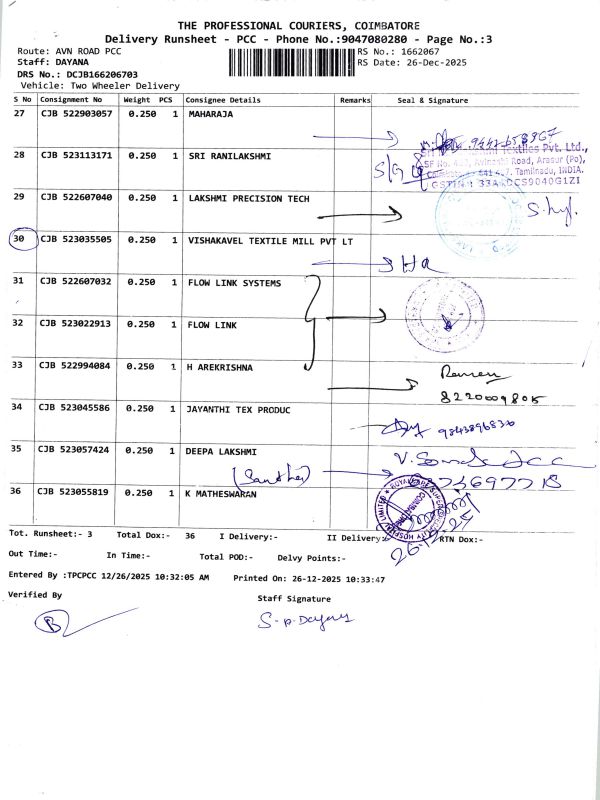 THE PROFESSIONAL COURIERS, COIMBATORE
Delivery Runsheet - PCC - Phone No.:9047080280 - Page No.:3
Route: AVN ROAD PCC
RS No.: 1662067
Staff: DAYANA
RS Date: 26-Dec-2025
DRS No.: DCJB166206703
Vehicle: Two Wheeler Delivery
S No Consignment No Weight PCS Consignee Details Remarks Seal & Signature
27 CJB 522903057 0.250 1 MAHARAJA
28 CJB 523113171 0.250 1 SRI RANILAKSHMI
Textiles Pvt. Ltd.,
Avinashi Road, Arasur (Po),
Tamilnadu, INDIA.
29 CJB 522607040 0.250 1 LAKSHMI PRECISION TECH
30 CJB 523035505 0.250 1 VISHAKAVEL TEXTILE MILL PVT LT
31 CJB 522607032 0.250 1 FLOW LINK SYSTEMS
32 CJB 523022913 0.250 1 FLOW LINK
33 CJB 522994084 0.250 1 H AREKRISHNA
8220009805
34 CJB 523045586 0.250 1 JAYANTHI TEX PRODUC
35 CJB 523057424 0.250 1 DEEPA LAKSHMI
36 CJB 523055819 0.250 1 K MATHESWARAN
Tot. Runsheet:- 3 Total Dox:- 36 I Delivery:- II Delivery:- RTN Dox:-
Out Time:- In Time:- Total POD:- Delvy Points:-
Entered By :TPCPCC 12/26/2025 10:32:05 AM Printed On: 26-12-2025 10:33:47
Verified By Staff Signature
B S. p. Dayana